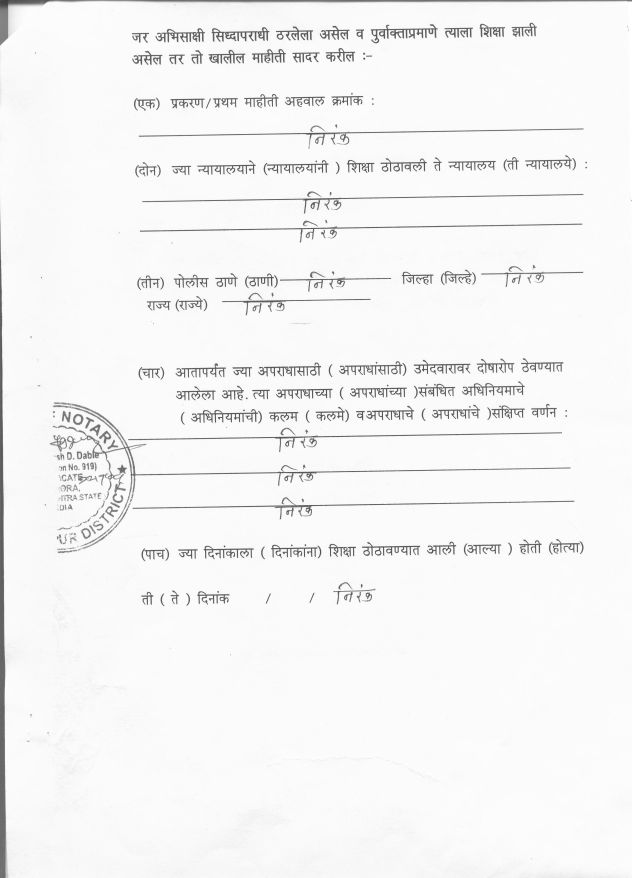 जर अभिसाक्षी सिध्दापराधी ठरलेला असेल व पुर्वाक्ताप्रमाणे त्याला शिक्षा झाली
असेल तर तो खालील माहीती सादर करील :-
(एक) प्रकरण/प्रथम माहीती अहवाल क्रमांक :
निरंक
(दोन) ज्या न्यायालयाने (न्यायालयांनी ) शिक्षा ठोठावली ते न्यायालय (ती न्यायालये) :
निरंक
निरंक
(तीन) पोलीस ठाणे (ठाणी) निरंक जिल्हा (जिल्हे) निरंक
राज्य (राज्ये) निरंक
(चार) आतापर्यंत ज्या अपराधासाठी ( अपराधांसाठी) उमेदवारावर दोषारोप ठेवण्यात
आलेला आहे. त्या अपराधाच्या ( अपराधांच्या )संबंधित अधिनियमाचे
( अधिनियमांची) कलम ( कलमे) व अपराधाचे ( अपराधांचे )संक्षिप्त वर्णन :
निरंक
निरंक
निरंक
NOTARY
sh D. Dable
on No. 919)
CATE
ORA,
HTRA STATE
DIA
UR DISTRICT
(पाच) ज्या दिनांकाला ( दिनांकांना) शिक्षा ठोठावण्यात आली (आल्या ) होती (होत्या)
ती ( ते ) दिनांक / / निरंक